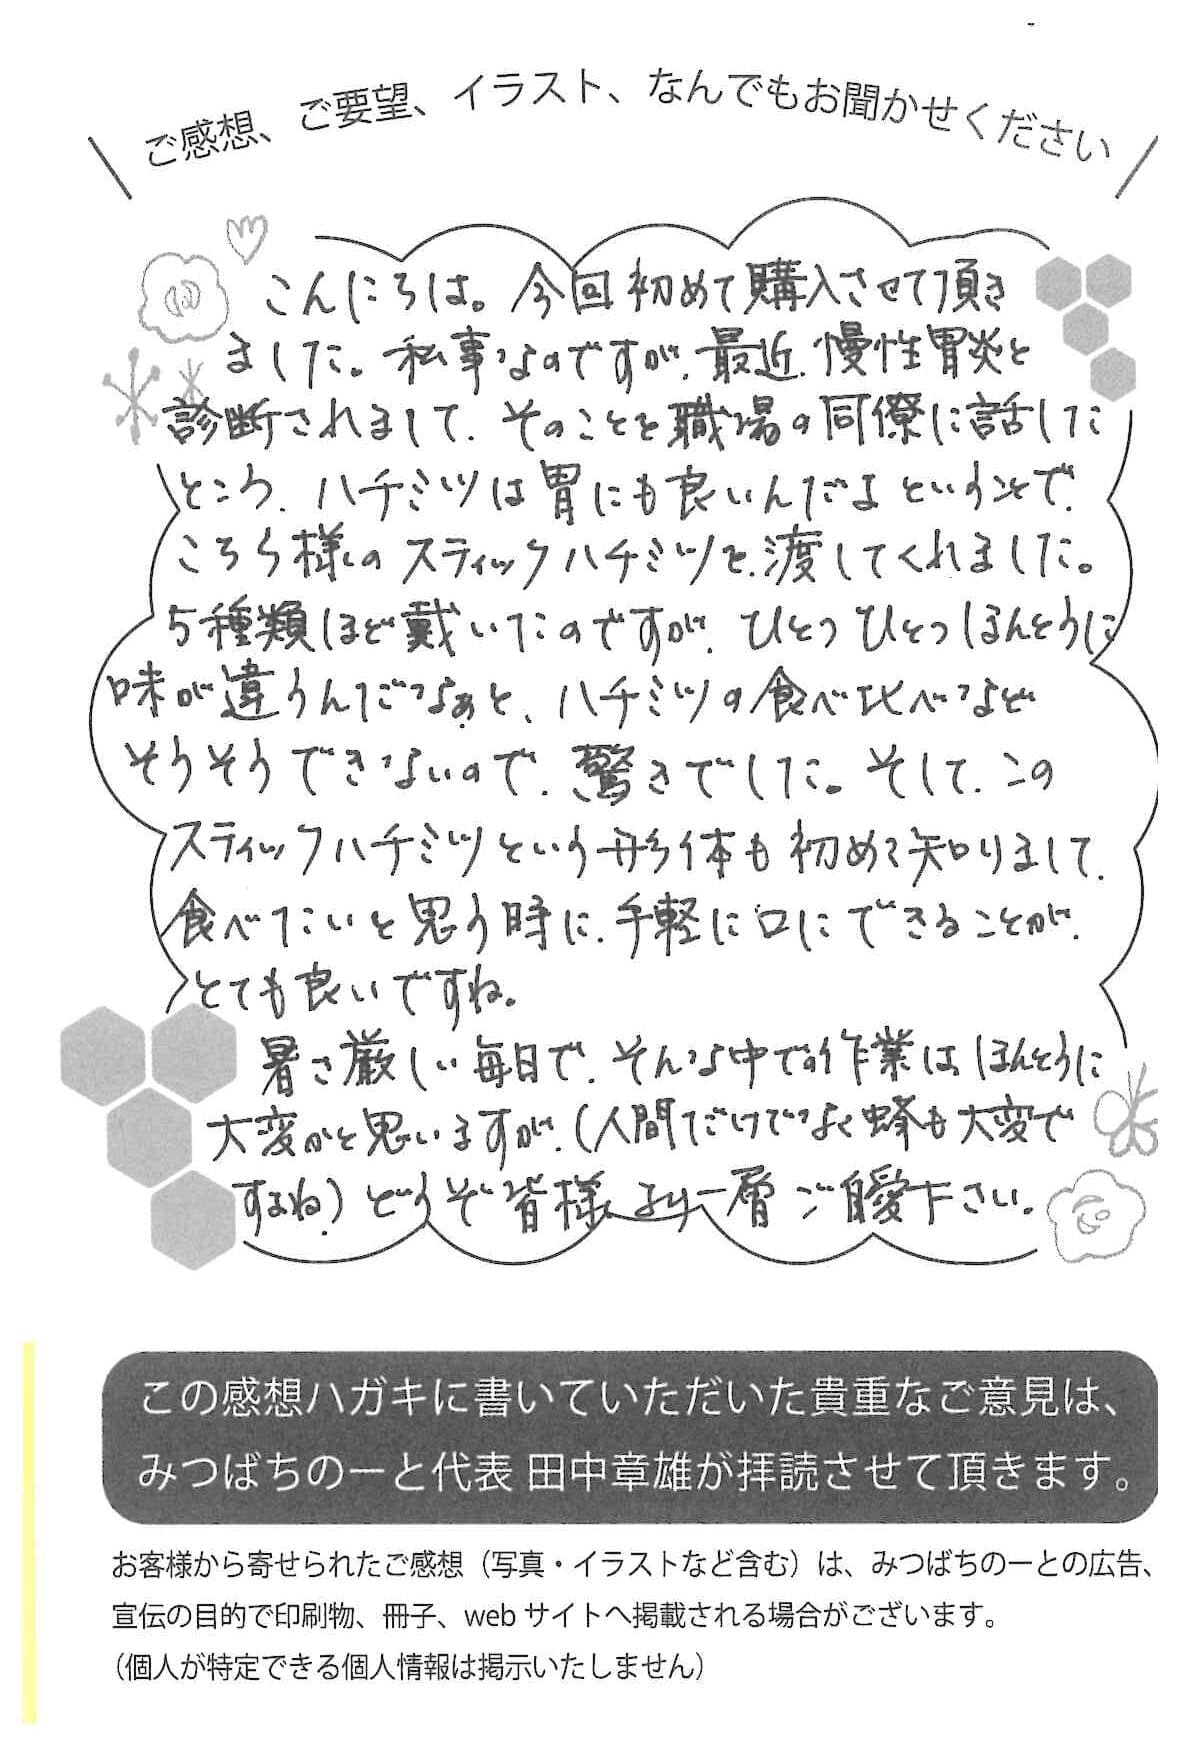 ご感想、ご要望、イラスト、なんでもお聞かせください
こんにちは。今回初めて購入させて頂き
ました。私事なのですが、最近、慢性胃炎と
診断されまして、そのことを職場の同僚に話した
ところ、ハチミツは胃にも良いんだよということで、
こちら様のスティックハチミツを、渡してくれました。
5種類ほど戴いたのですが、ひとつひとつほんとうに
味が違うんだなぁと、ハチミツの食べ比べなど
そうそうできないので、驚きでした。そして、この
スティックハチミツという形体も初めて知りまして、
食べたいと思う時に、手軽に口にできることが、
とても良いですね。
暑さ厳しい毎日で、そんな中での作業はほんとうに
大変かと思いますが、(人間だけでなく蜂も大変で
すよね)どうぞ皆様、より一層ご自愛下さい。
この感想ハガキに書いていただいた貴重なご意見は、
みつばちのーと代表 田中章雄が拝読させて頂きます。
お客様から寄せられたご感想（写真・イラストなど含む）は、みつばちのーとの広告、
宣伝の目的で印刷物、冊子、web サイトへ掲載される場合がございます。
（個人が特定できる個人情報は掲示いたしません）